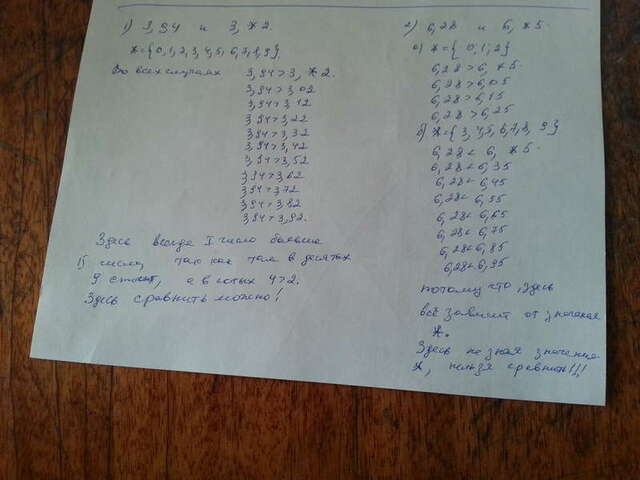 1) 3,94 и 3,*2.
* = {0,1,2,3,4,5,6,7,8,9}
Во всех случаях 3,94 > 3,*2.
3,94 > 3,02
3,94 > 3,12
3,94 > 3,22
3,94 > 3,32
3,94 > 3,42
3,94 > 3,52
3,94 > 3,62
3,94 > 3,72
3,94 > 3,82
3,94 > 3,92.
Здесь всегда I число больше
II числа, так как там в десятых
9 стоит, а в сотых 4>2.
Здесь сравнить можно!
2) 6,28 и 6,*5.
а) * = {0,1,2}
6,28 > 6,*5.
6,28 > 6,05
6,28 > 6,15
6,28 > 6,25
б) * = {3,4,5,6,7,8,9}
6,28 < 6,*5.
6,28 < 6,35
6,28 < 6,45
6,28 < 6,55
6,28 < 6,65
6,28 < 6,75
6,28 < 6,85
6,28 < 6,95
потому что, здесь
всё зависит от значения
*.
Здесь не зная значение
*, нельзя сравнить!!!